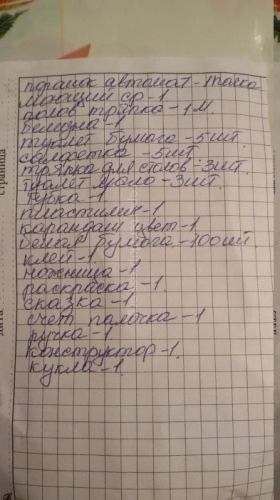 порошок автомат - 1 пачка
Моющий ср - 1
полов тряпка - 1 м
белизна - 1
туалет бумага - 5 шт.
салфетка - 5 шт
тряпка для столов - 3 шт.
туалет мыло - 3 шт.
губка - 1
пластилин - 1
карандаш цвет - 1
белая бумага - 100 шт.
клей - 1
ножница - 1
раскраска - 1
сказка - 1
счет палочка - 1
ручка - 1
конструктор - 1
кукла - 1.
страница
дата